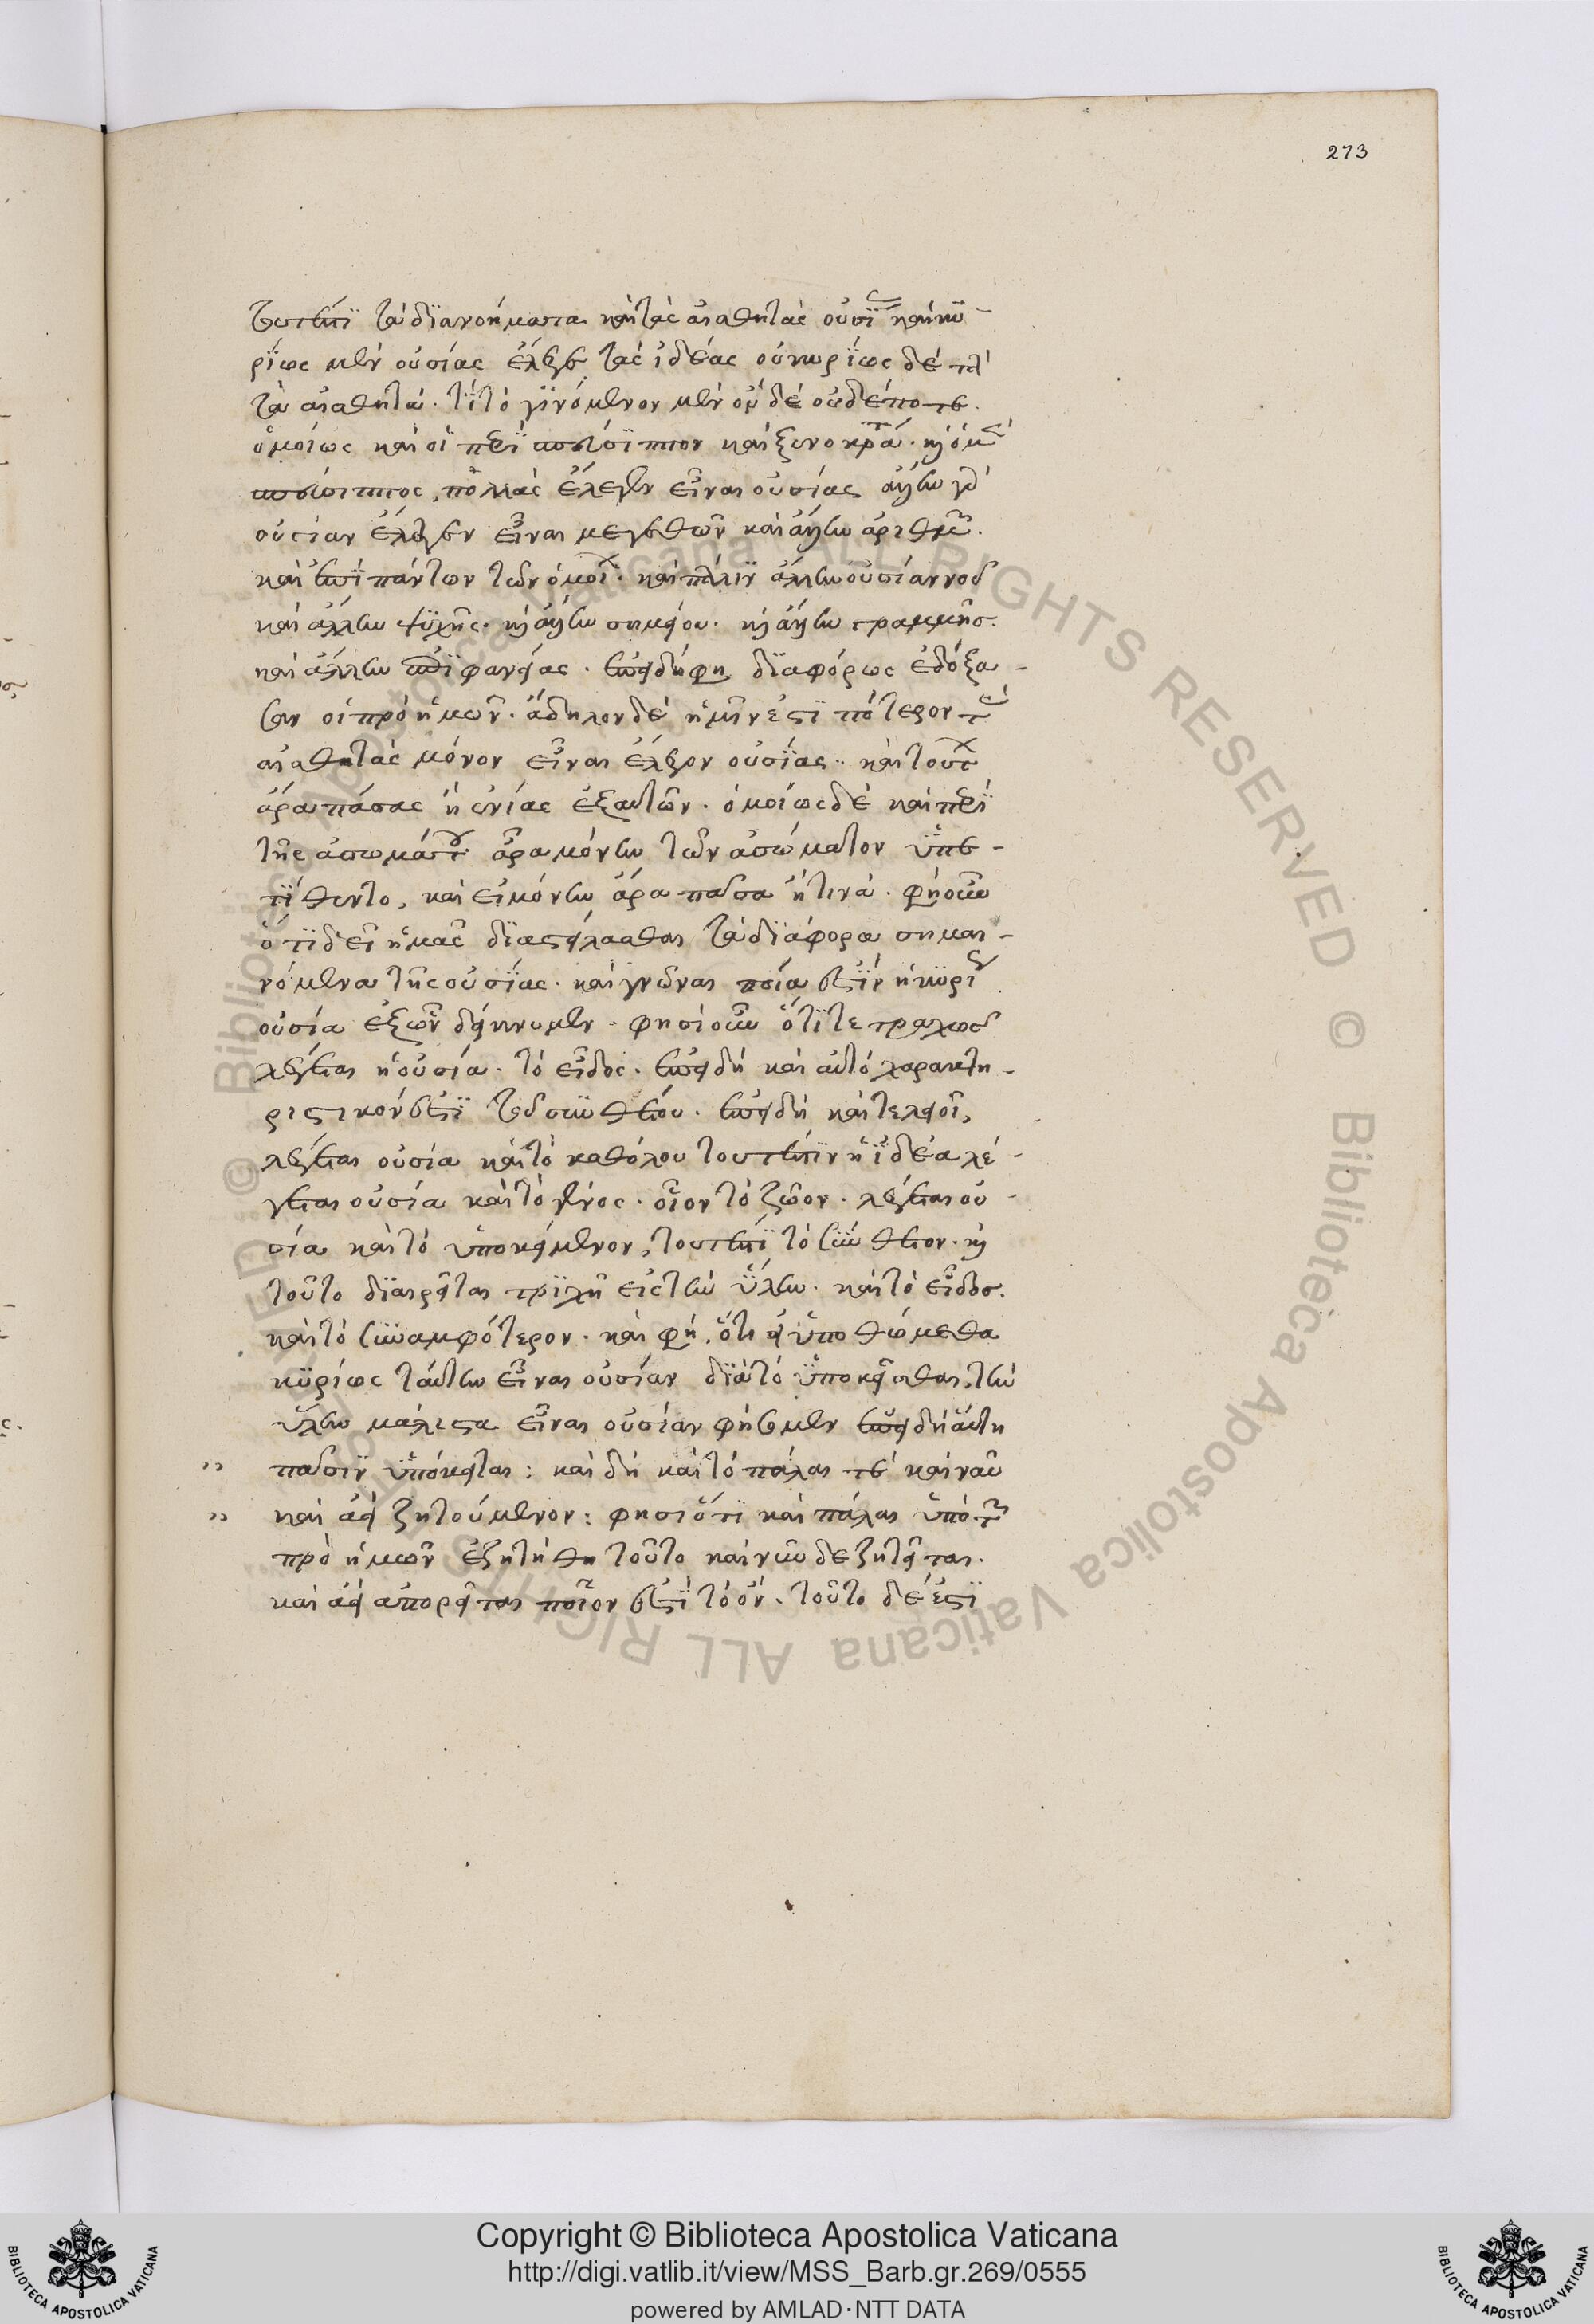 273
τουτέστι τὰ διανοήματα καὶ τὰς αἰσθητὰς οὐσίας καὶ κυ-
ρίως μὲν οὐσίας ἔλεγε τὰς ἰδέας οὐ κυρίως δὲ
τὰ αἰσθητά. τί τὸ γινόμενον μὲν ὂν δὲ οὐδέποτε.
ὁμοίως καὶ οἱ περὶ σπεύσιππον καὶ ξενοκρά. καὶ ὁ μὲν
σπεύσιππος, πολλὰς ἔλεγεν εἶναι οὐσίας ἄλλην γὰρ
οὐσίαν ἔλεγεν εἶναι μεγεθῶν καὶ ἄλλην ἀριθμῶν.
καὶ ἐπὶ πάντων τῶν ὁμοί. καὶ πάλιν ἄλλην οὐσίαν νοῦ
καὶ ἄλλην ψυχῆς. καὶ ἄλλην σημείου. καὶ ἄλλην γραμμῆς.
καὶ ἄλλην ἐπιφανείας. ἐπειδή φη διαφόρως ἐδόξα-
σαν οἱ πρὸ ἡμῶν. ἄδηλον δὲ ἡμῖν ἐστι πότερον τὰς
αἰσθητὰς μόνον εἶναι ἔλεγον οὐσίας. καὶ τούτων
ἆρα πάσας ἢ ἐνίας ἐξ αὐτῶν. ὁμοίως δὲ καὶ περὶ
τῆς ἀσωμάτου ἆρα μόνην τὴν ἀσώματον ὑπε-
τίθεντο, καὶ εἰ μόνην ἆρα πᾶσα ἤ τινα. φησὶ οὖν
ὅτι δεῖ ἡμᾶς διαστείλασθαι τὰ διάφορα σημαι-
νόμενα τῆς οὐσίας. καὶ γνῶναι ποία ἐστὶν ἡ κυρί
οὐσία ἐξ ὧν δείκνυμεν. φησὶ οὖν ὅτι τετραχῶς
λέγεται ἡ οὐσία. τὸ εἶδος. ἐπειδὴ καὶ αὐτὸ χαρακτη-
ριστικόν ἐστι τοῦ συνθέτου. ἐπειδὴ καὶ τελειοῖ,
λέγεται οὐσία καὶ τὸ καθόλου τουτέστιν ἡ ἰδέα λέ-
γεται οὐσία καὶ τὸ γένος. οἷον τὸ ζῶον. λέγεται οὐ-
σία καὶ τὸ ὑποκείμενον, τουτέστι τὸ σύνθετον. καὶ
τοῦτο διαιρεῖται τριχῆ εἰς τὴν ὕλην. καὶ τὸ εἶδος.
καὶ τὸ συναμφότερον. καὶ φη, ὅτι εἰ ὑποθώμεθα
κυρίως ταύτην εἶναι οὐσίαν διὰ τὸ ὑποκεῖσθαι, τὴν
ὕλην μάλιστα εἶναι οὐσίαν φήσομεν ἐπειδὴ αὕτη
" πᾶσιν ὑπόκειται: καὶ δὴ καὶ τὸ πάλαι τε καὶ νῦν
" καὶ ἀεὶ ζητούμενον: φησὶ ὅτι καὶ πάλαι ὑπὸ τῶν
πρὸ ἡμῶν ἐζητήθη τοῦτο καὶ νῦν δὲ ζητεῖται.
καὶ ἀεὶ ἀπορεῖται ποῖον ἐστὶ τὸ ὄν. τοῦτο δέ ἐστι
Copyright © Biblioteca Apostolica Vaticana
http://digi.vatlib.it/view/MSS_Barb.gr.269/0555
powered by AMLAD·NTT DATA